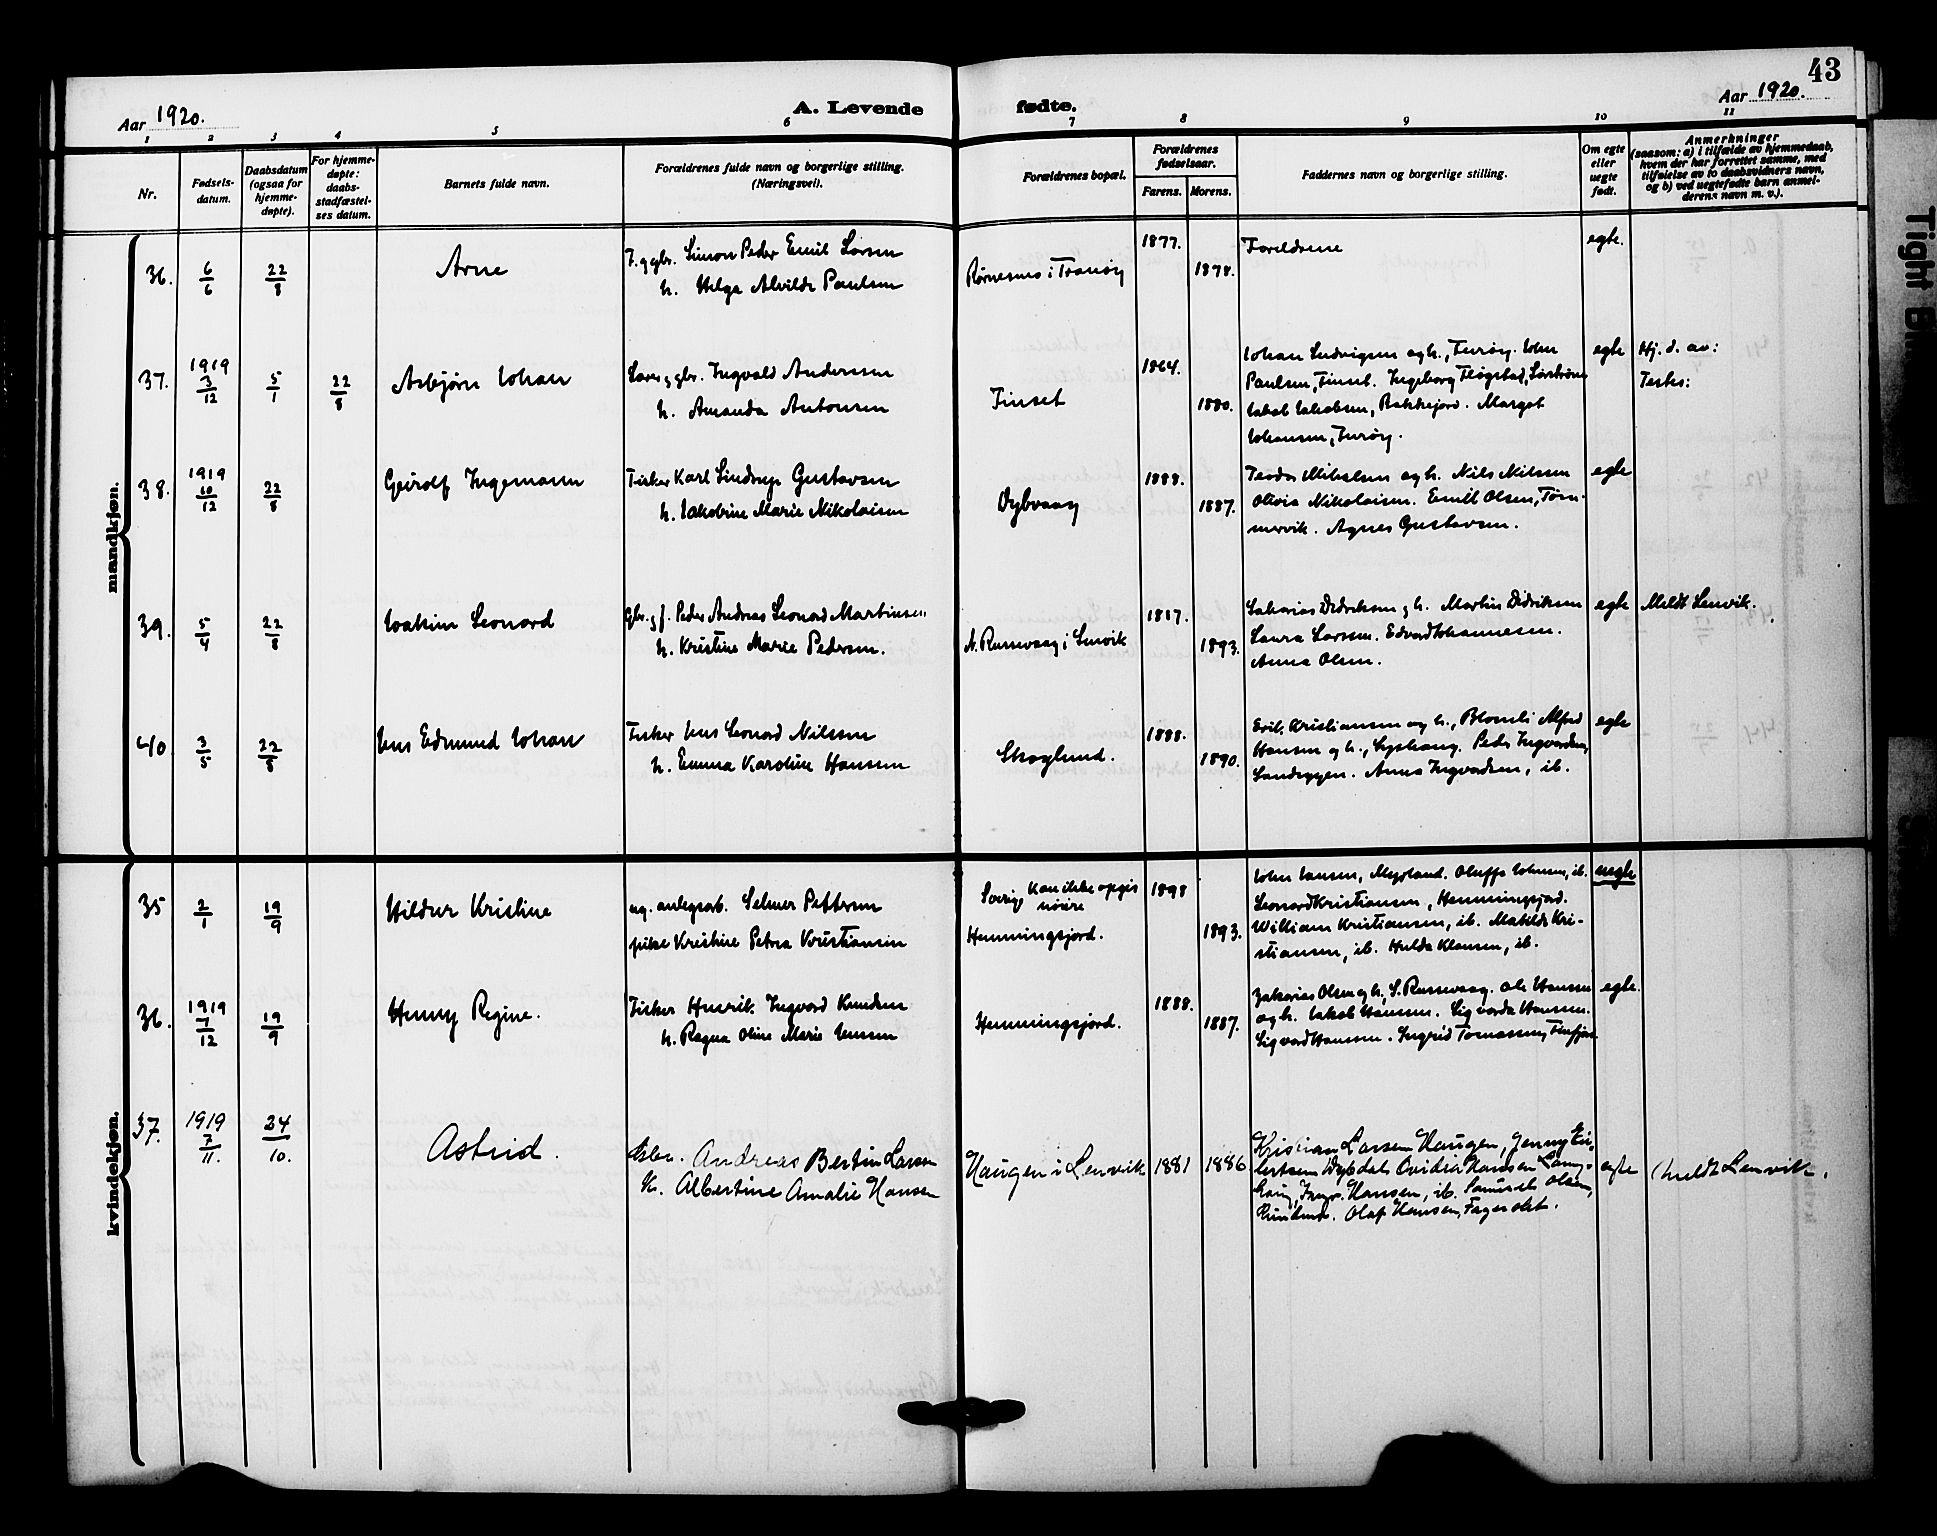 43
Aar 1920.
A. Levende fødte.
Aar 1920.
1 2 3 4 5 6 7 8 9 10 11
Nr.
Fødsels-
datum.
Daabsdatum
(ogsaa for
hjemme-
døpte).
For hjemme-
døpte:
daabs-
stadfæstel-
ses datum.
Barnets fulde navn.
Forældrenes fulde navn og borgerlige stilling.
(Næringsvei).
Forældrenes bopæl.
Forældrenes
fødselsaar.
Farens. Morens.
Faddernes navn og borgerlige stilling.
Om egte
eller
uegte
født.
Anmerkninger
(saasom: a) i tilfælde av hjemmedaab,
hvem der har forrettet samme, med
tilføielse av to daabsvidners navn,
og b) ved uegtefødte barn anmel-
derens navn m. v.).
mandkjøn.
36. 6/6 22/8 Arne
F. og gbr. Simon Peder Emil Larsen
h. Helga Alvilde Paulsen
Rørnesnes i Tranøy
1877.
1878.
Foreldrene
egte.
37. 1919 3/12 5/1 22/8 Asbjørn Johan
gbr. Ingvald Andersen
h. Amanda Antonsen
Finset
1864.
1880.
Johan Ludvigsen og h.,
Paulsen, Finset. Ingeborg Fløgstad,
Jakob Jakobsen, Bakkejord. Margot
Johansen,
egte
Hj. d. av:
Testes:
38. 1919 10/12 22/8 Geirolf Ingemann
Fisker Karl Lindrup Gustavsen
h. Jakobine Marie Nikolaisen
1888.
1887.
og h. Nils Nilssen
Olivia Nikolaisen. Emilt Olsen, Tøm-
mervik. Agnes Gustavsen.
egte
39. 5/4 22/8 Joakim Leonard
Gbr. g f. Peder Andreas Leonard Martinsen
h. Kristine Marie Pedersen.
N. Russevaag i Lenvik
1817.
1893.
Sakarias Didriksen g h. Martin Didriksen
Laura Larssen. Edvard Johannesen.
Anna Olsen.
egte
Meldt Lenvik.
40 3/5 22/8 Jens Edmund Johan
Fisker Jens Leonard Nilssen
h. Emma Karoline Hansen
Skoglund.
1888.
1890.
Kristiansen og h., Blomli Alfred
Hansen og h., Peder Ingvardsen,
Anna Ingvardsen, ib.
egte
kvindekjøn.
35 2/1 19/9 Hildur Kristine
ug. anlegsarb. Selmer Pettersen
pike Kristine Petrea Kristiansen
Sverige kan ikke opgis
nøiere
Hemmingsjord.
1898
1893.
John Jansen, Myrland. ib.
Leonard Kristiansen, Hemmingsjord.
William Kristiansen, ib. Matilde Kri-
stiansen, ib. Hulda Klausen, ib.
uegte
36. 1919 7/12 19/9 Henny Regine.
Fisker Henrik Ingvard Knudsen
h. Ragna Oline Marie Jensen
Hemmingsjord.
1888.
1887.
Zakarias Olsen og h., S. Russevaag. Ole Hansen
og h. Jakob Hansen. Sigvarda Hanssen.
Sigvard Hanssen. Ingrid Tomassen,
egte.
37. 1919 7/11. 24/10. Astrid.
Gbr. Andreas Bertin Larsen
H. Albertine Amalie Hansen
Haugen i Lenvik
1881
1886
Kristian Larsen Haugen, Jenny Ei-
lertsen Ovidia Hansen
Hansen, ib. Olsen,
Olaf Hansen,
egte
(meldt Lenvik.